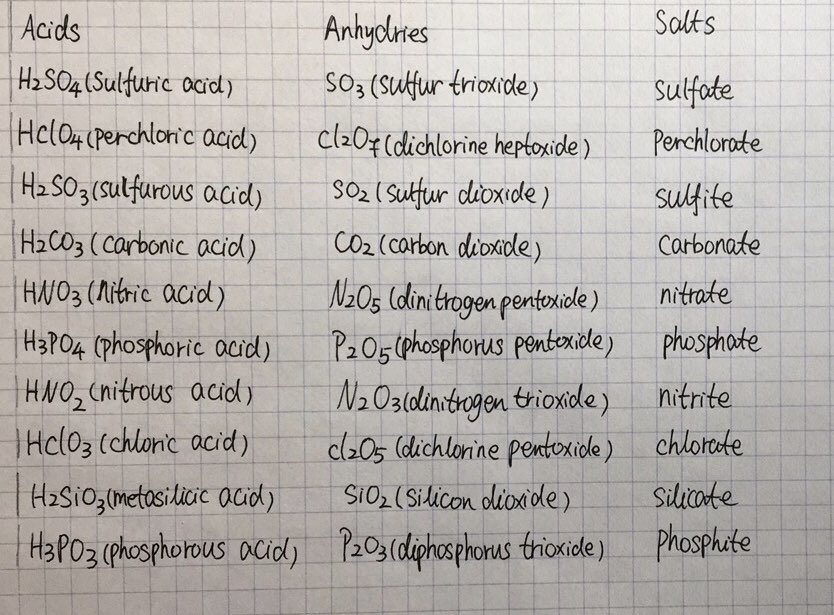 Acids Anhydries Salts
H2SO4 (Sulfuric acid) SO3 (sulfur trioxide) sulfate
HClO4 (perchloric acid) Cl2O7 (dichlorine heptoxide) Perchlorate
H2SO3 (sulfurous acid) SO2 (sulfur dioxide) sulfite
H2CO3 (carbonic acid) CO2 (carbon dioxide) Carbonate
HNO3 (Nitric acid) N2O5 (dinitrogen pentoxide) nitrate
H3PO4 (phosphoric acid) P2O5 (phosphorus pentoxide) phosphate
HNO2 (nitrous acid) N2O3 (dinitrogen trioxide) nitrite
HClO3 (chloric acid) Cl2O5 (dichlorine pentoxide) chlorate
H2SiO3 (metasilicic acid) SiO2 (silicon dioxide) silicate
H3PO3 (phosphorous acid) P2O3 (diphosphorus trioxide) Phosphite